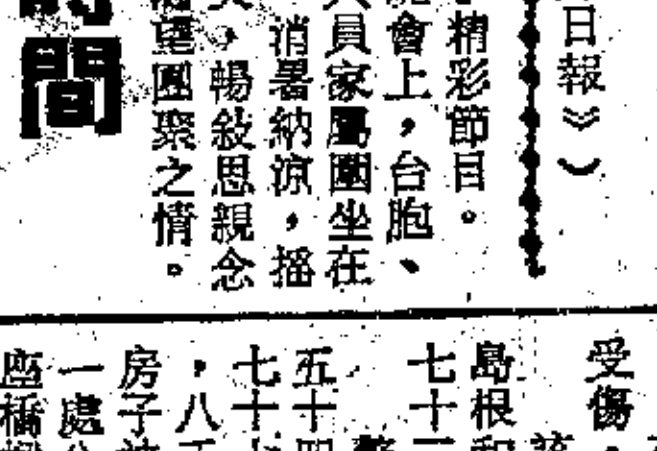 日報》）
精彩節目。
會上，台胞、
員家屬圍坐在
消暑納涼，搖
暢敍思親念
望團聚之情。
間
受傷，
島根和
七十
五十四
七十七
，八千
房子
一處公
座橋